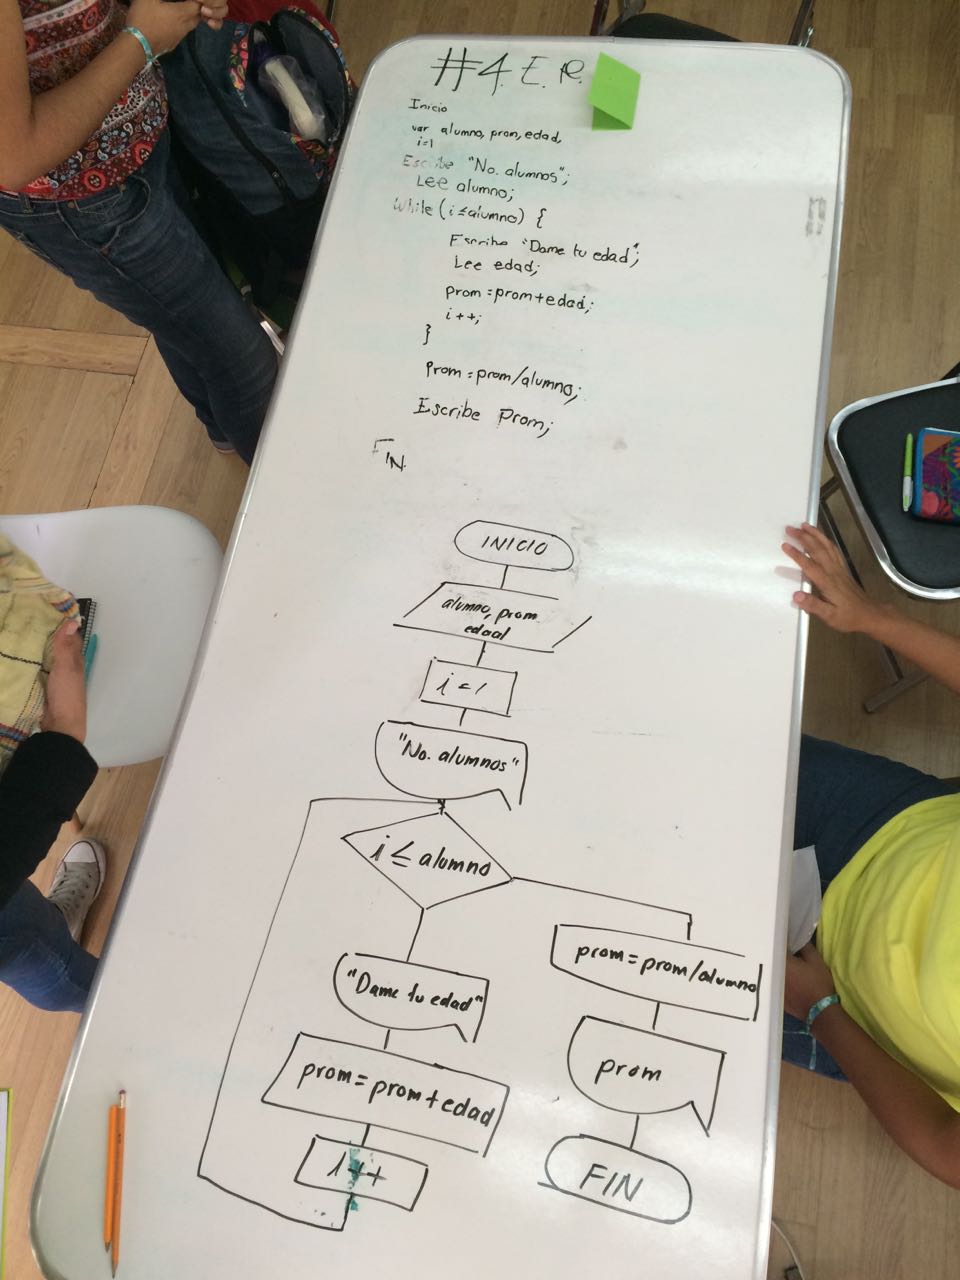 #4. E.R.
Inicio
var alumno, prom, edad,
i=1
Escribe "No. alumnos";
Lee alumno;
While (i ≤ alumno) {
Escribe "Dame tu edad";
Lee edad;
Prom = prom + edad;
i++;
}
Prom = prom/alumno;
Escribe Prom;
FIN
INICIO
alumno, prom
edad
i=1
"No. alumnos"
i ≤ alumno
"Dame tu edad"
prom = prom + edad
i++
prom = prom/alumno
prom
FIN